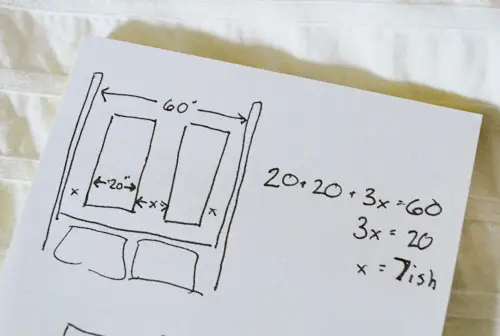 60"
x
20"
x
x
20+20+3x=60
3x=20
x=7ish